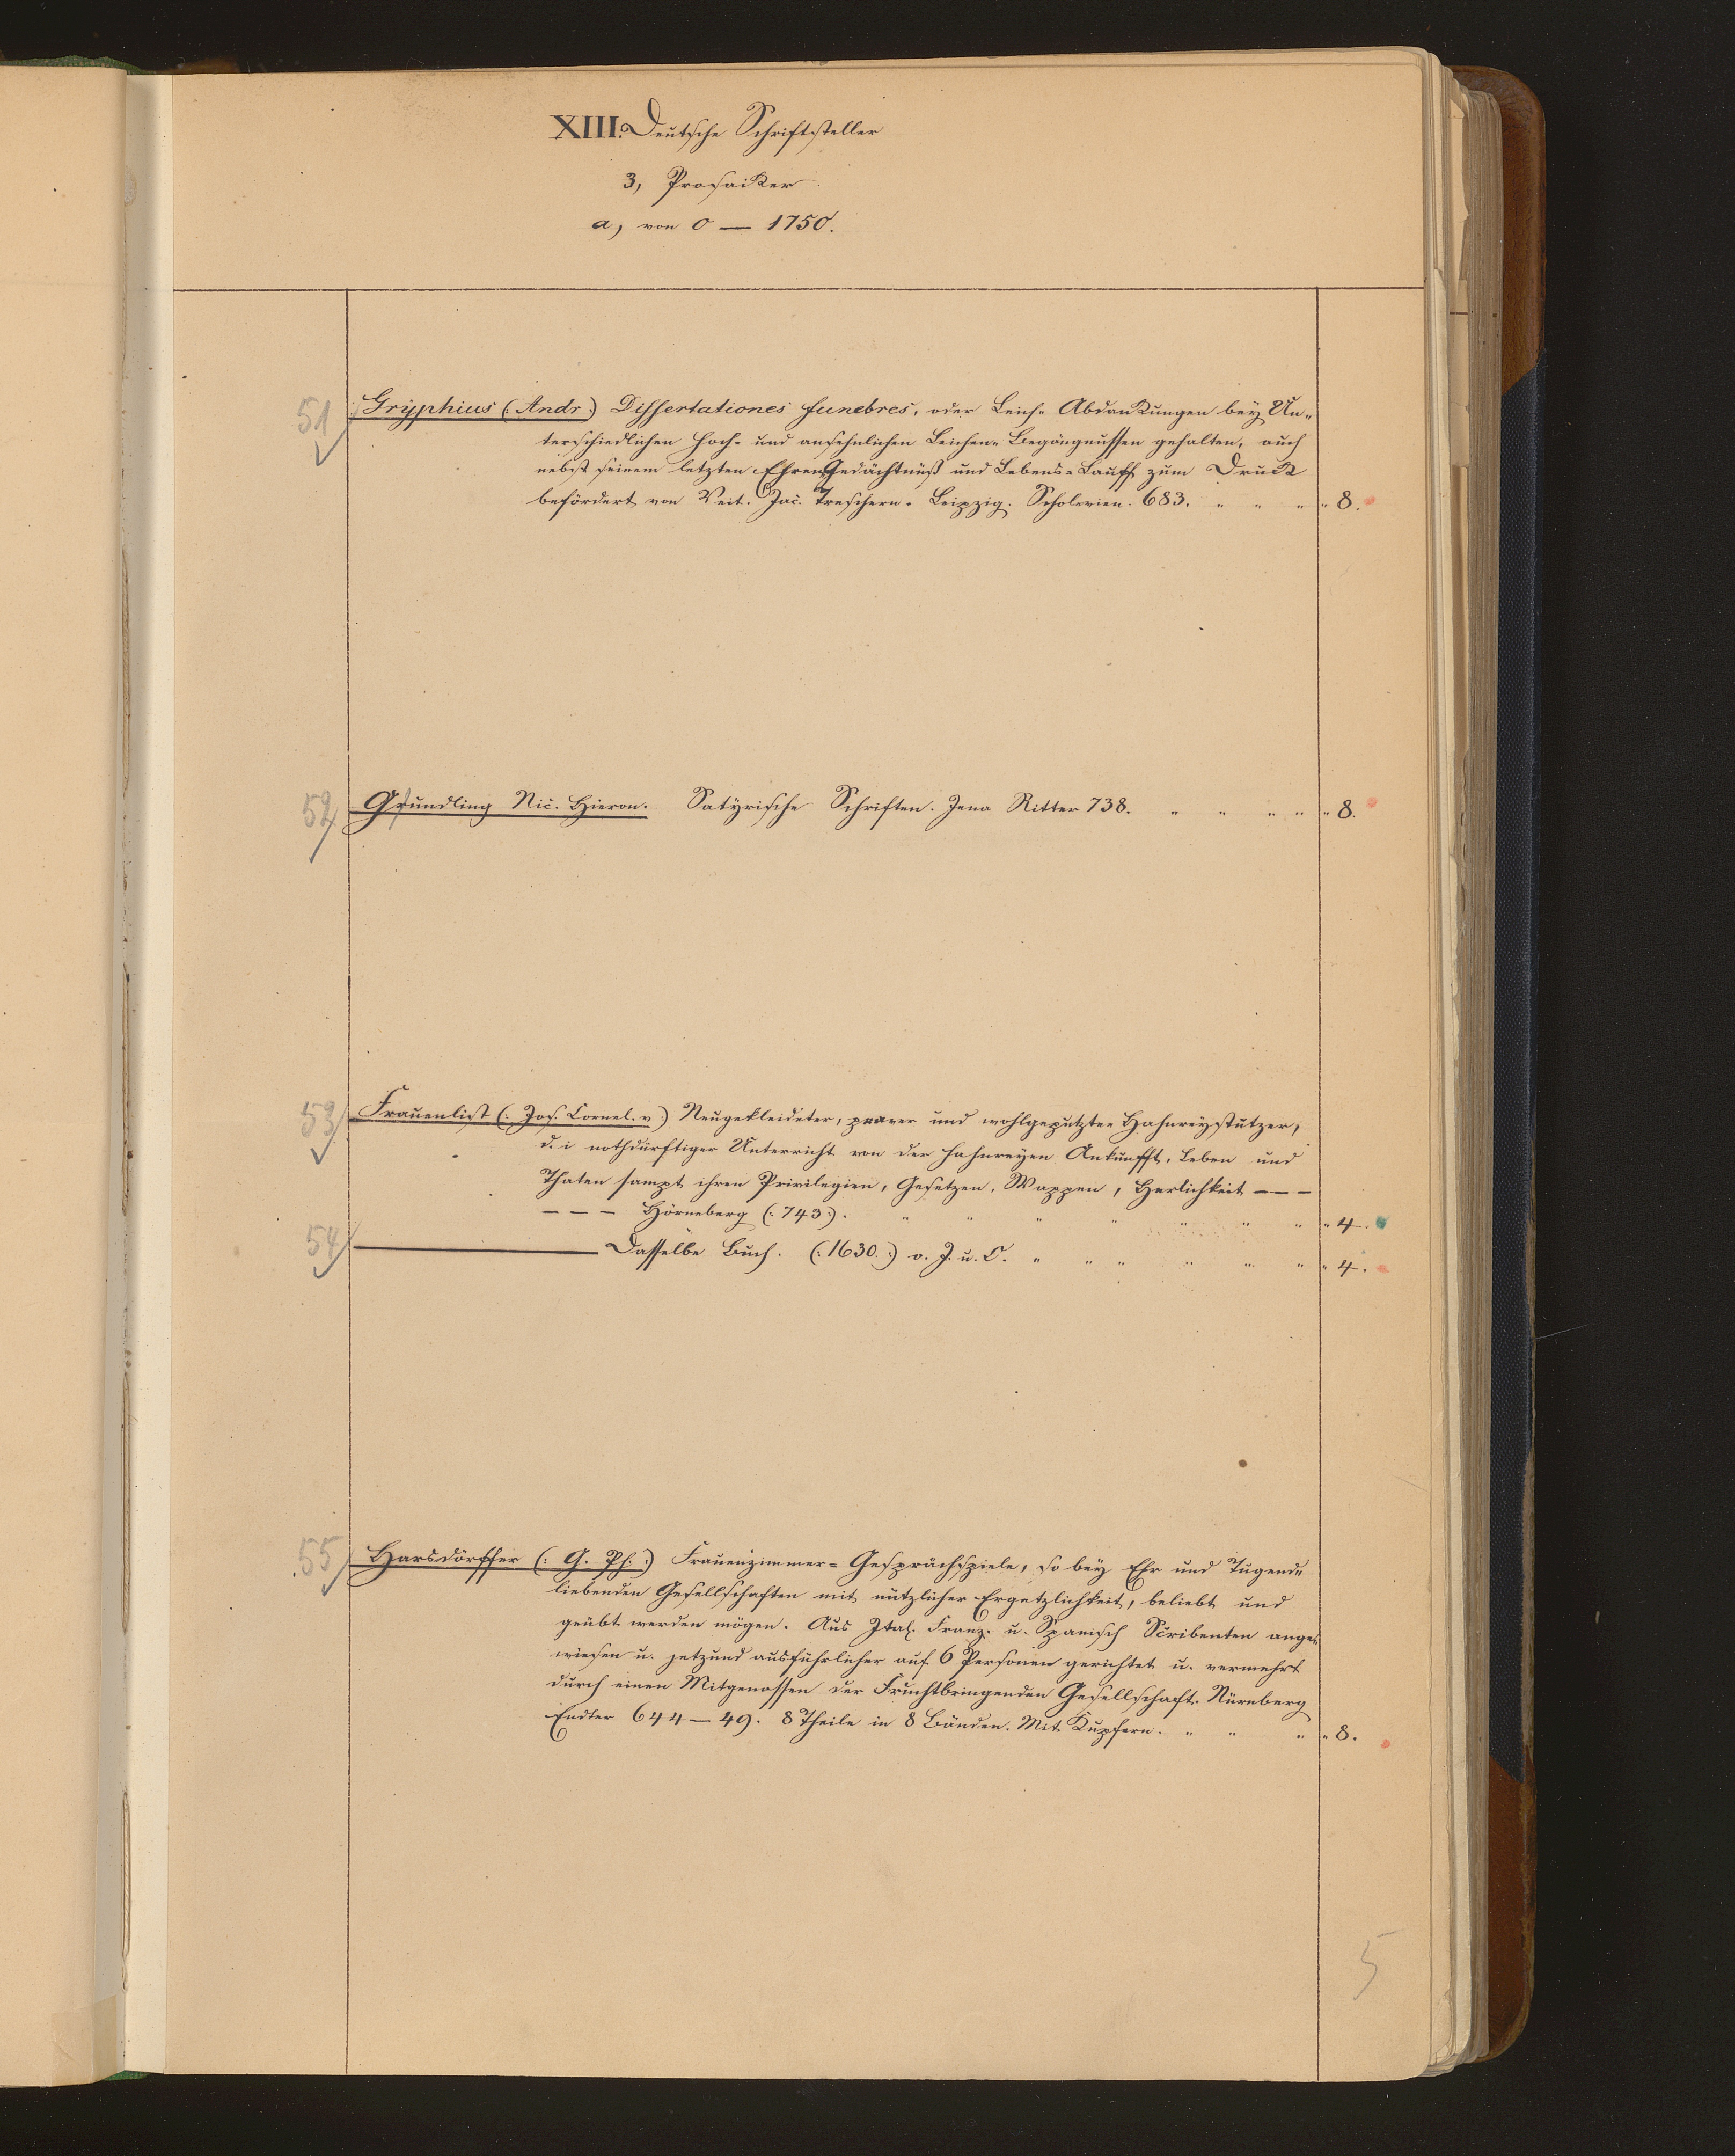 XIII. Deutsche Schriftsteller
3, Prosaiker
a, von 0 — 1750.
51 Gryphius (: Andr :) Dissertationes funebres, oder Leich= Abdankungen bey Un=
terschiedlichen Hoch= und ansehnlichen Leichen= Begängnussen gehalten, auch
nebst seinem letzten Ehren Gedächtnüß und Lebens= Lauff zum Druck
befördert von Veit. Jac. Treschern. Leipzig. 683. " " " " 8.
52 Gundling Nic. Hieron. Satyrische Schriften. Jena Ritter 738. " " " " " 8.
53 Frauenlist (: Jos. Cornel. v :) Neugekleideter, praver und wohlgeputzter Hahnreystutzer,
d. i nothdürftiger Unterricht von der Hahnreyen Ankunfft, Leben und
Thaten sampt ihren Privilegien, Gesetzen, Wappen, Herlichkeit – – –
– – – Hörneberg (: 743 :). " " " " " " " " 4.
54 ——— Dasselbe Buch. (: 1630. :) o. J. u. O. " " " " " " " 4.
55 Harsdörffer (: G. Ph. :) Frauenzimmer= Gesprächspiele, so bey Ehr und Tugend=
liebenden Gesellschaften mit nützlicher Ergetzlichkeit, beliebt und
geübt werden mögen. Aus Ital. Franz. u. Spanisch Scribenten ange=
wiesen u. jetzund ausführlicher auf 6 Personen gerichtet u. vermehrt
durch einen Mitgenossen der Fruchtbringenden Gesellschaft. Nürnberg
Endter 644–49. 8 Theile in 8 Bänden. Mit Kupfern. " " " " 8.
5